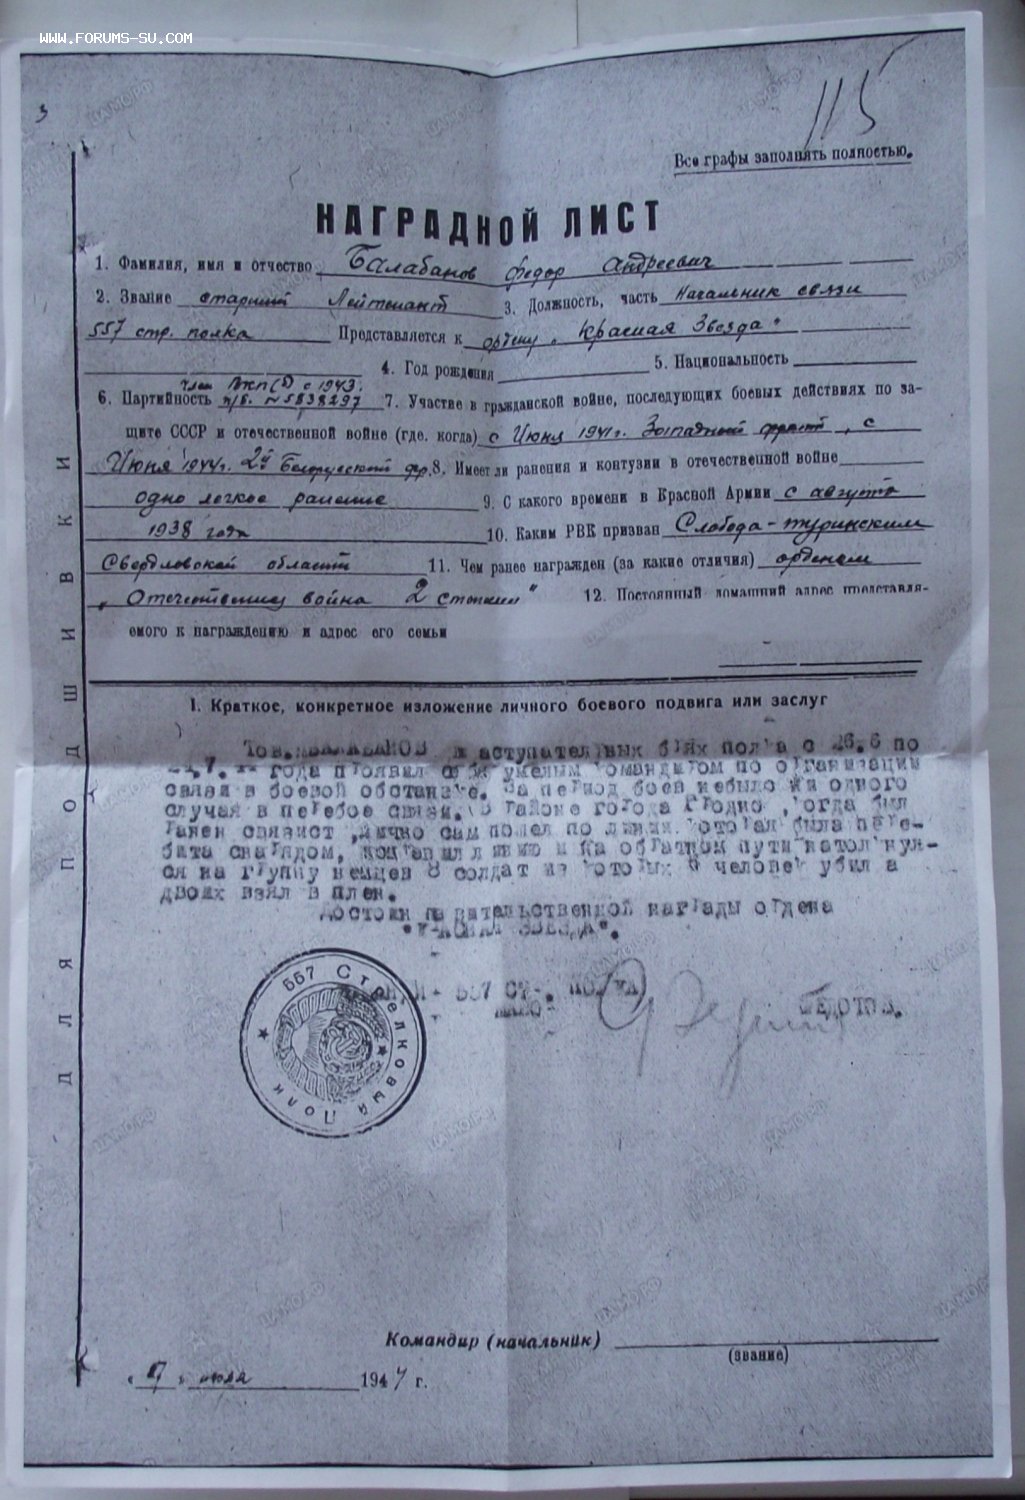 WWW.FORUMS-SU.COM
3
115
Все графы заполнять полностью.
НАГРАДНОЙ ЛИСТ
1. Фамилия, имя и отчество Балабанов Федор Андреевич
2. Звание старший Лейтенант 3. Должность, часть Начальник связи
557 стр. полка Представляется к ордену „Красная Звезда"
4. Год рождения 5. Национальность
член ВКП(б) с 1943.
6. Партийность п/б. №5838297 7. Участие в гражданской войне, последующих боевых действиях по за-
щите СССР и отечественной войне (где, когда) с Июня 1941г. Западный фронт, с
Июня 1944г. 2й Белорусский фр. 8. Имеет ли ранения и контузии в отечественной войне
одно легкое ранение 9. С какого времени в Красной Армии с августа
1938 года 10. Каким РВК призван Слобода-туринским
Свердловской области 11. Чем ранее награжден (за какие отличия) орденом
„Отечественная война 2 степени" 12. Постоянный домашний адрес представля-
емого к награждению и адрес его семьи
1. Краткое, конкретное изложение личного боевого подвига или заслуг
Тов. БАЛАБАНОВ в наступательных боях полка с 26.6 по
.7. года проявил себя умелым командиром по организации
связи в боевой обстановке. За период боев небыло ни одного
случая в перебое связи. В районе города Гродно, когда был
ранен связист, лично сам пошел по линии которая была пере-
бита снарядом, исправил линию и на обратном пути натолкнул-
ся на группу немцев 8 солдат из которых 6 человек убил а
двоих взял в плен.
Достоин правительственной награды ордена
"КРАСНАЯ ЗВЕЗДА".
557 СТР. ПОЛКА
ФЕДОТОВ.
557 Стрелковый Полк
ДЛЯ ПОДШИВКИ
Командир (начальник)
(звание)
июля 1944 г.